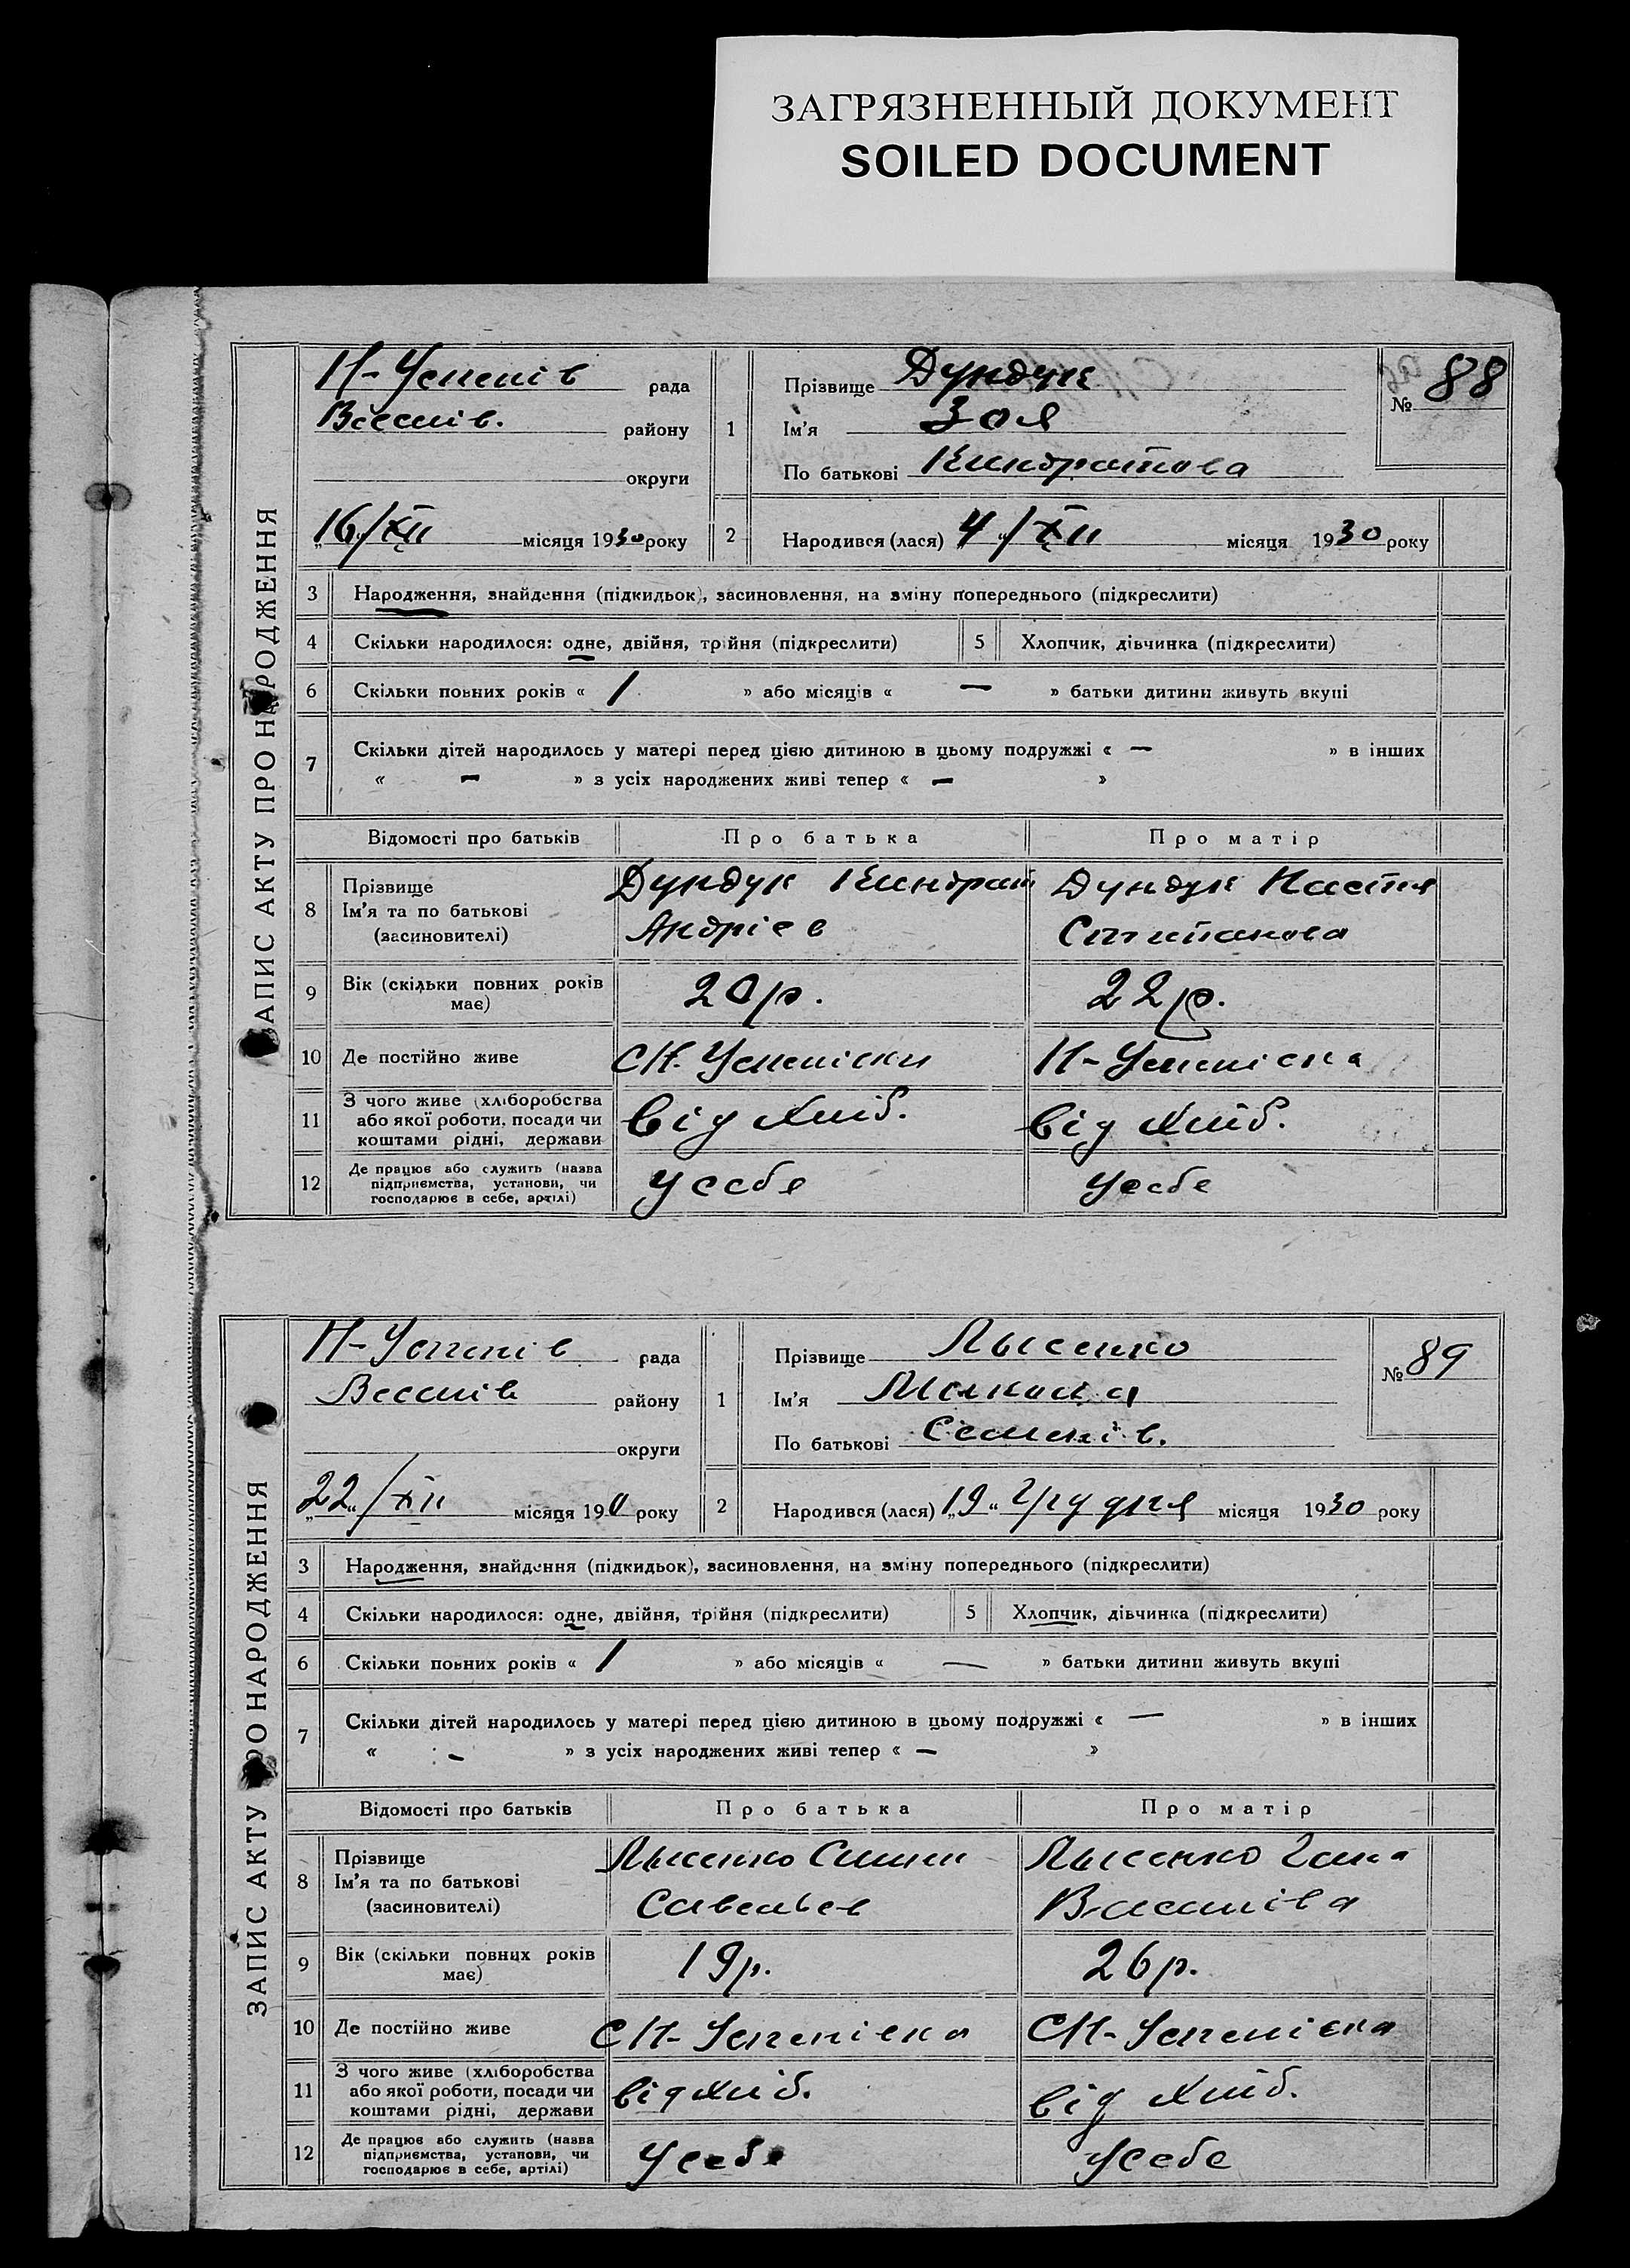 ЗАГРЯЗНЕННЫЙ ДОКУМЕНТ
SOILED DOCUMENT
ЗАПИС АКТУ ПРО НАРОДЖЕННЯ
Н-Успенів рада
Веселів. району
округи
„16/XII місяця 1930 року
1 Прізвище Дундук
Ім’я Зоя
По батькові Киндратова
№ 88
2 Народився (лася) „4“/XII місяця 1930 року
3 Народження, знайдення (підкидьок), засиновлення, на зміну попереднього (підкреслити)
4 Скільки народилося: одне, двійня, трійня (підкреслити) 5 Хлопчик, дівчинка (підкреслити)
6 Скільки повних років « 1 » або місяців « — » батьки дитини живуть вкупі
7 Скільки дітей народилось у матері перед цією дитиною в цьому подружжі « — » в інших
« — » з усіх народжених живі тепер « — »
Відомості про батьків Про батька Про матір
8 Прізвище
Ім’я та по батькові
(засиновителі)
Дундук Киндрат
Андріев
Дундук Настя
Степанова
9 Вік (скільки повних років
має)
20 р. 22 р.
10 Де постійно живе С Н-Успенівки Н-Успенівка
11 З чого живе (хліборобства
або якої роботи, посади чи
коштами рідні, держави
від хліб. від хліб.
12 Де працює або служить (назва
підприємства, установи, чи
господарює в себе, артілі)
у себе у себе
ЗАПИС АКТУ ПРО НАРОДЖЕННЯ
Н-Успенів рада
Веселів району
округи
„22“/XII місяця 190 року
1 Прізвище Лысенко
Ім’я
По батькові Семенів.
№ 89
2 Народився (лася) „19“ Грудня місяця 1930 року
3 Народження, знайдення (підкидьок), засиновлення, на зміну попереднього (підкреслити)
4 Скільки народилося: одне, двійня, трійня (підкреслити) 5 Хлопчик, дівчинка (підкреслити)
6 Скільки повних років « 1 » або місяців « — » батьки дитини живуть вкупі
7 Скільки дітей народилось у матері перед цією дитиною в цьому подружжі « — » в інших
« — » з усіх народжених живі тепер « — »
Відомості про батьків Про батька Про матір
8 Прізвище
Ім’я та по батькові
(засиновителі)
Лысенко
Савельев
Лысенко Гана
Василіва
9 Вік (скільки повних років
має)
19 р. 26 р.
10 Де постійно живе С Н-Успенівка С Н-Успенівка
11 З чого живе (хліборобства
або якої роботи, посади чи
коштами рідні, держави
від хліб. від хліб.
12 Де працює або служить (назва
підприємства, установи, чи
господарює в себе, артілі)
у себе у себе